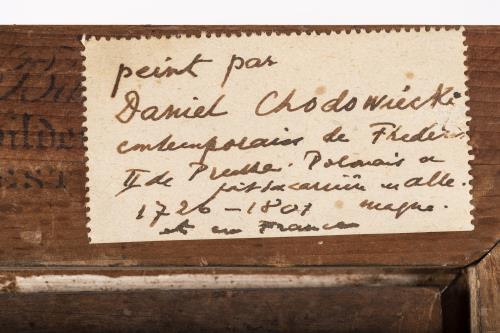 peint par
Daniel Chodowiecki
contemporain de Frederic
II de Prusse. Polonais
sa carrière en Alle-
1726 – 1801 magne.
et en France
ilde